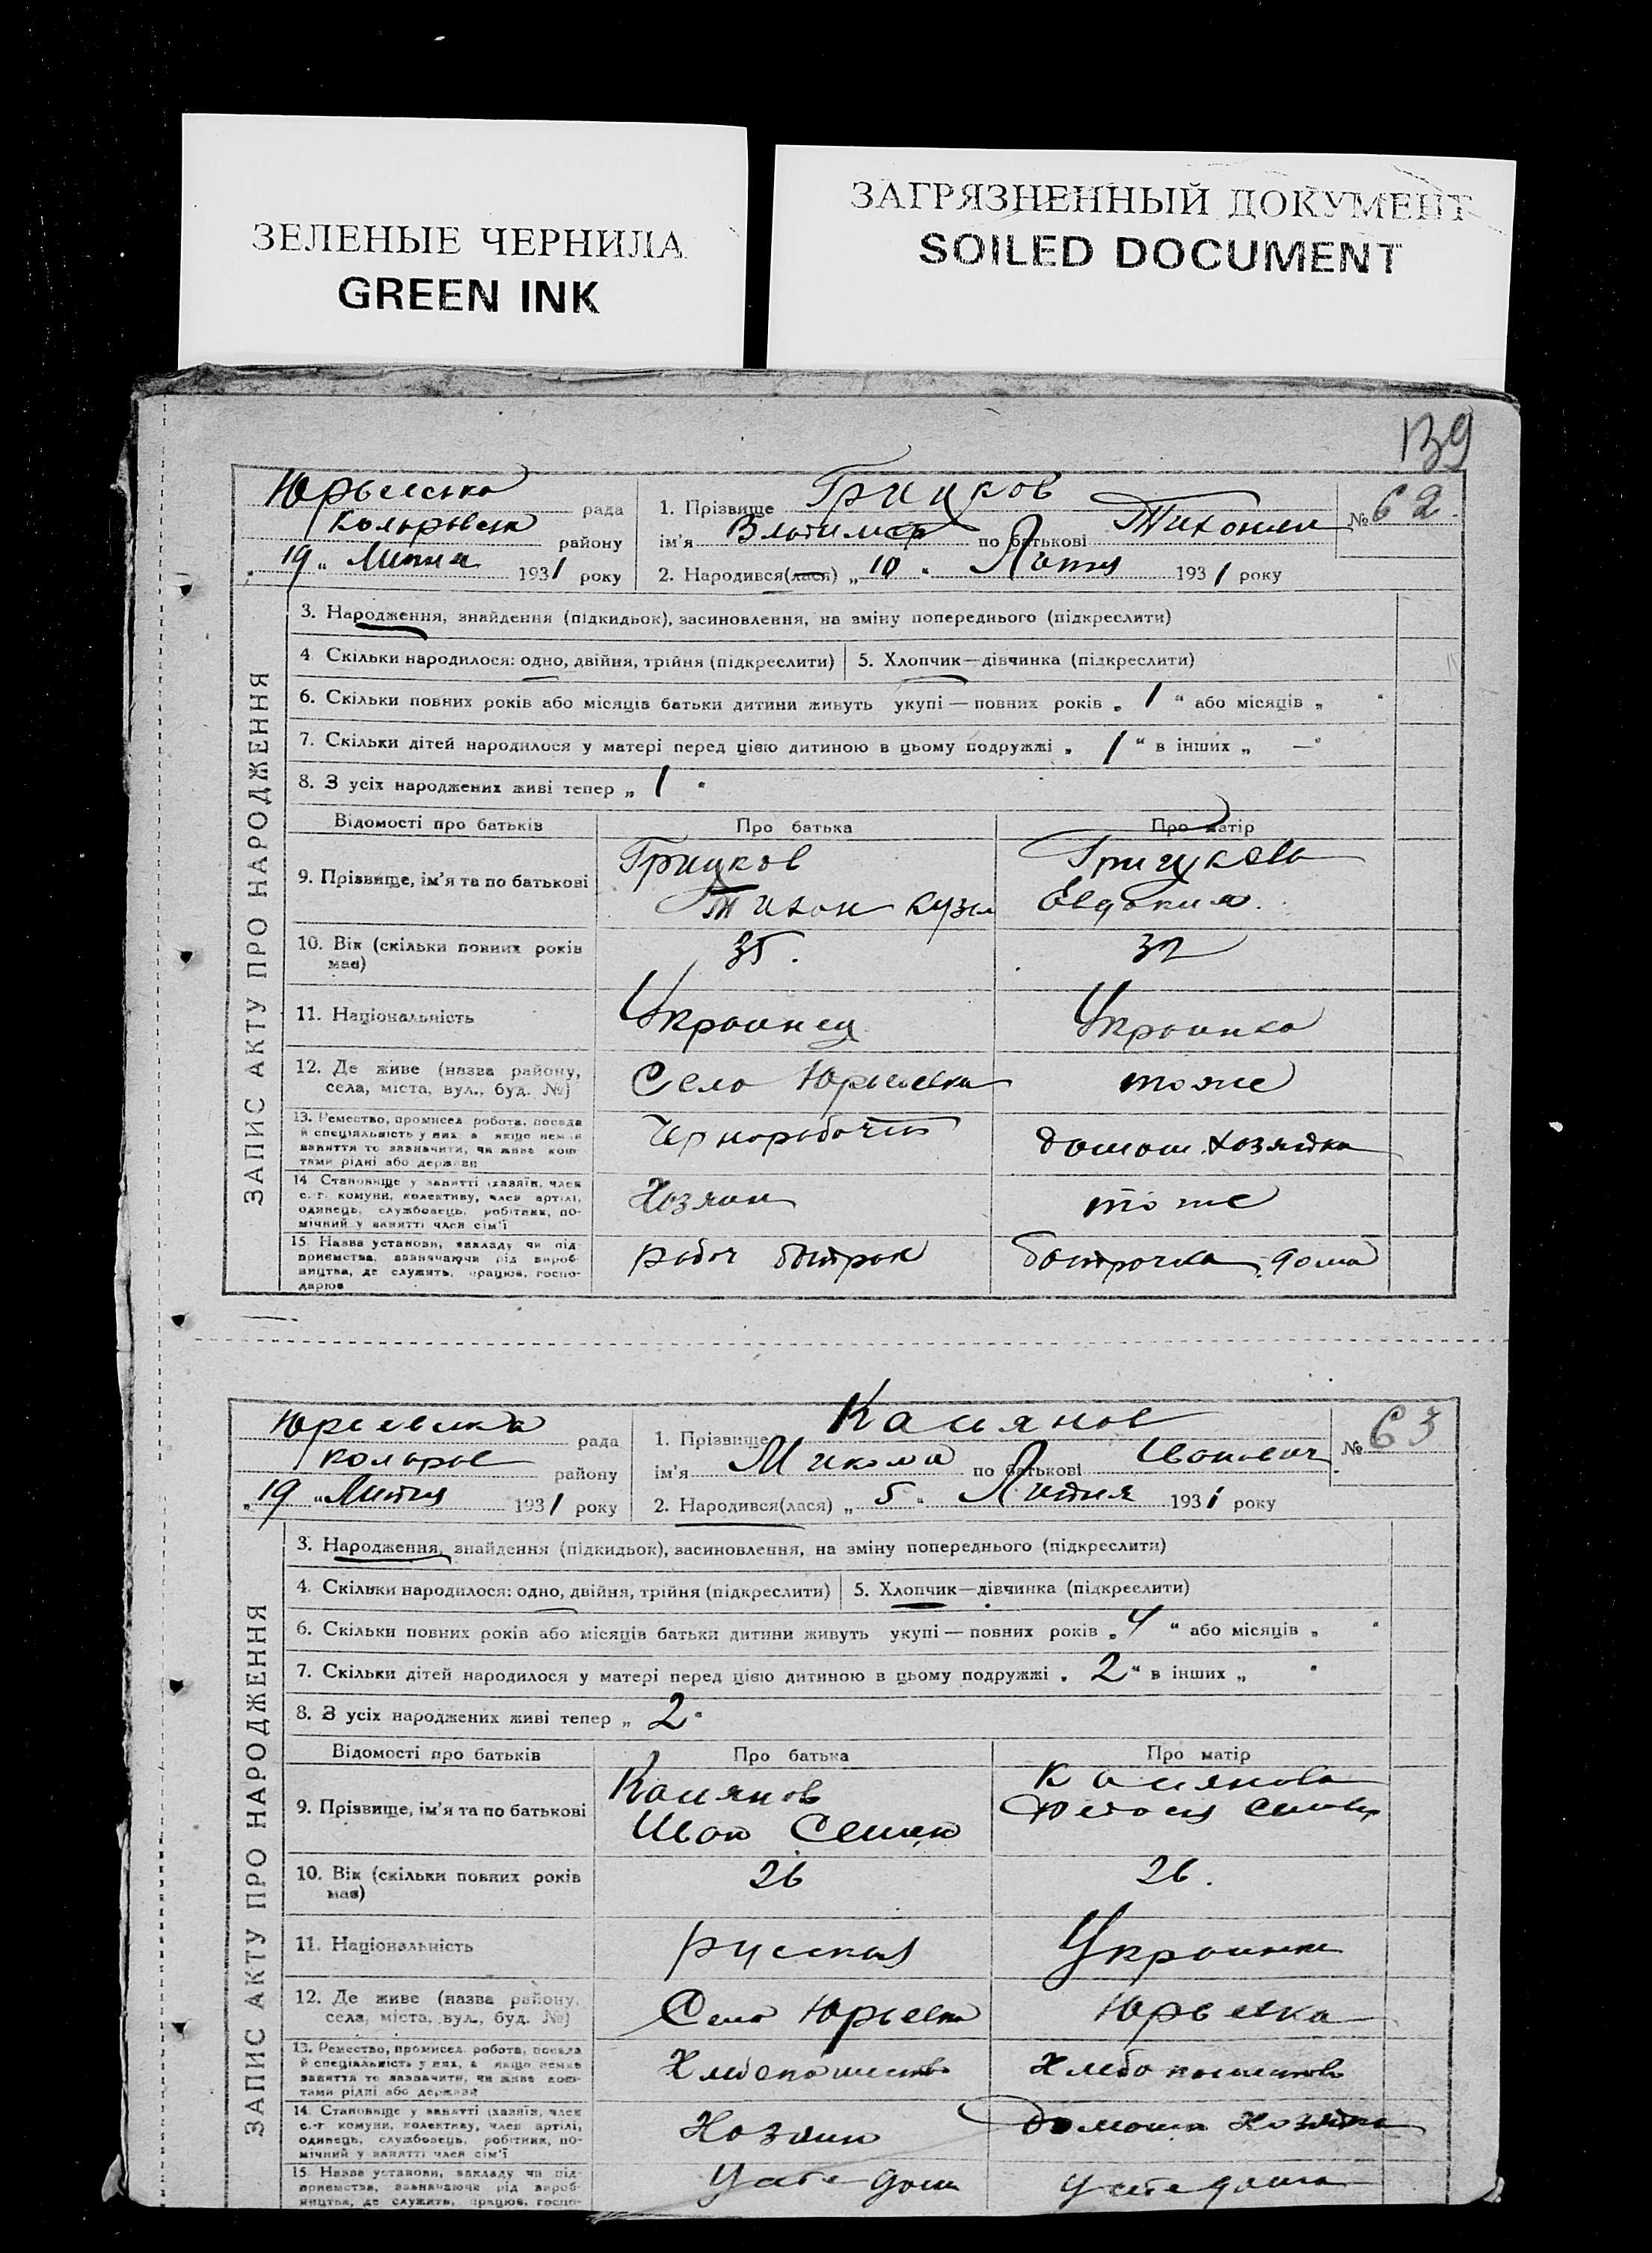 ЗЕЛЕНЫЕ ЧЕРНИЛА
GREEN INK
ЗАГРЯЗНЕННЫЙ ДОКУМЕНТ
SOILED DOCUMENT
139
ЗАПИС АКТУ ПРО НАРОДЖЕННЯ
рада
району
„19„ Липня 1931 року
1. Прізвище Грицков
ім'я Владимер по батькові
№ 62
2. Народився(лася) „10„ 1931 року
3. Народження, знайдення (підкидьок), засиновлення, на зміну попереднього (підкреслити)
4 Скільки народилося: одно, двійня, трійня (підкреслити) 5. Хлопчик—дівчинка (підкреслити)
6. Скільки повних років або місяців батьки дитини живуть укупі — повних років „ 1 “ або місяців „ “
7. Скільки дітей народилося у матері перед цією дитиною в цьому подружжі „ 1 “ в інших „ — “
8. З усіх народжених живі тепер „ 1 “
Відомості про батьків Про батька Про матір
9. Прізвище, ім'я та по батькові Грицков
Тихон Кузм
10. Вік (скільки повних років має) 35. 32
11. Національність Украинец Украинка
12. Де живе (назва району, села, міста, вул., буд. №) Село Юрьевка тоже
13. Ремество, промисел, робота, посада й спеціальність у них, а якщо немає заняття то зазначити, чи живе коштами рідні або держави Чернорабочий домаш. хозяйка
14 Становище у занятті (хазяїн, член с.-г. комуни, колективу, член артілі, одинець, службовець, робітник, помічний у занятті член сім'ї Хозяин тоже
15 Назва установи, закладу чи підприємства, зазначаючи рід виробництва, де служить, працює, господарює рабоч батрак батрачка дома
ЗАПИС АКТУ ПРО НАРОДЖЕННЯ
рада
району
„19„ Липня 1931 року
1. Прізвище Касянов
ім'я Микола по батькові Иванович
№ 63
2. Народився(лася) „ 5 „ Липня 1931 року
3. Народження, знайдення (підкидьок), засиновлення, на зміну попереднього (підкреслити)
4. Скільки народилося: одно, двійня, трійня (підкреслити) 5. Хлопчик—дівчинка (підкреслити)
6. Скільки повних років або місяців батьки дитини живуть укупі — повних років „ 4 “ або місяців „ “
7. Скільки дітей народилося у матері перед цією дитиною в цьому подружжі „ 2 “ в інших „ “
8. З усіх народжених живі тепер „ 2 “
Відомості про батьків Про батька Про матір
9. Прізвище, ім'я та по батькові Касянов Касянова
Иван Семен
10. Вік (скільки повних років має) 26 26.
11. Національність Украинка
12. Де живе (назва району, села, міста, вул., буд. №) Село Юрьевка Юрьевка
13. Ремество, промисел, робота, посада й спеціальність у них, а якщо немає заняття то зазначити, чи живе коштами рідні або держави Хлебопашество Хлебопашество
14. Становище у занятті (хазяїн, член с.-г. комуни, колективу, член артілі, одинець, службовець, робітник, помічний у занятті член сім'ї Хозяин Домаш Хозяйка
15. Назва установи, закладу чи підприємства, зазначаючи рід виробництва, де служить, працює, госпо- У себе дома У себе дома